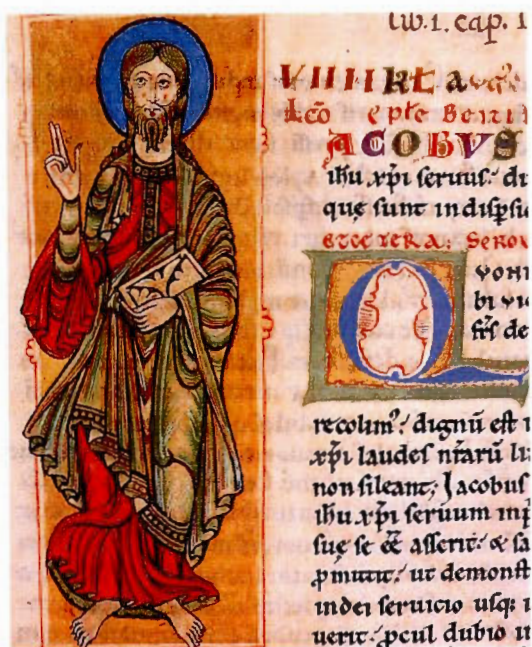 lib. 1. cap. 1
VIIII kł augᵗ.
lcō eptē Beati
JACOBUS
ihu xp̄i seruus. di
que sunt in dispsi
et cetera: Sermo
QVONI
bi vi
frs de
recolim⁹. dignū est
xp̄i laudes nr̄arū li
non sileant; Jacobus
ihu xp̄i seruum in
sue se ēē asserit. & sa
pmittit. ut demonst
in dei seruicio usq;
uerit. pcul dubio